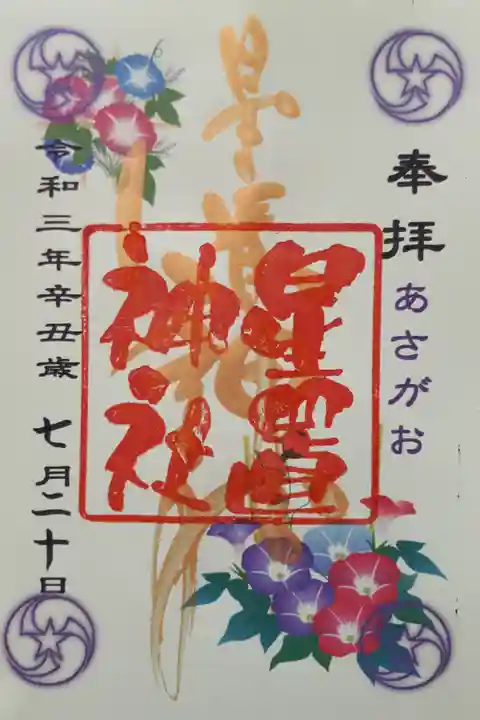 奉拝
あさがお
星置
神社
令和三年辛丑歳 七月二十日